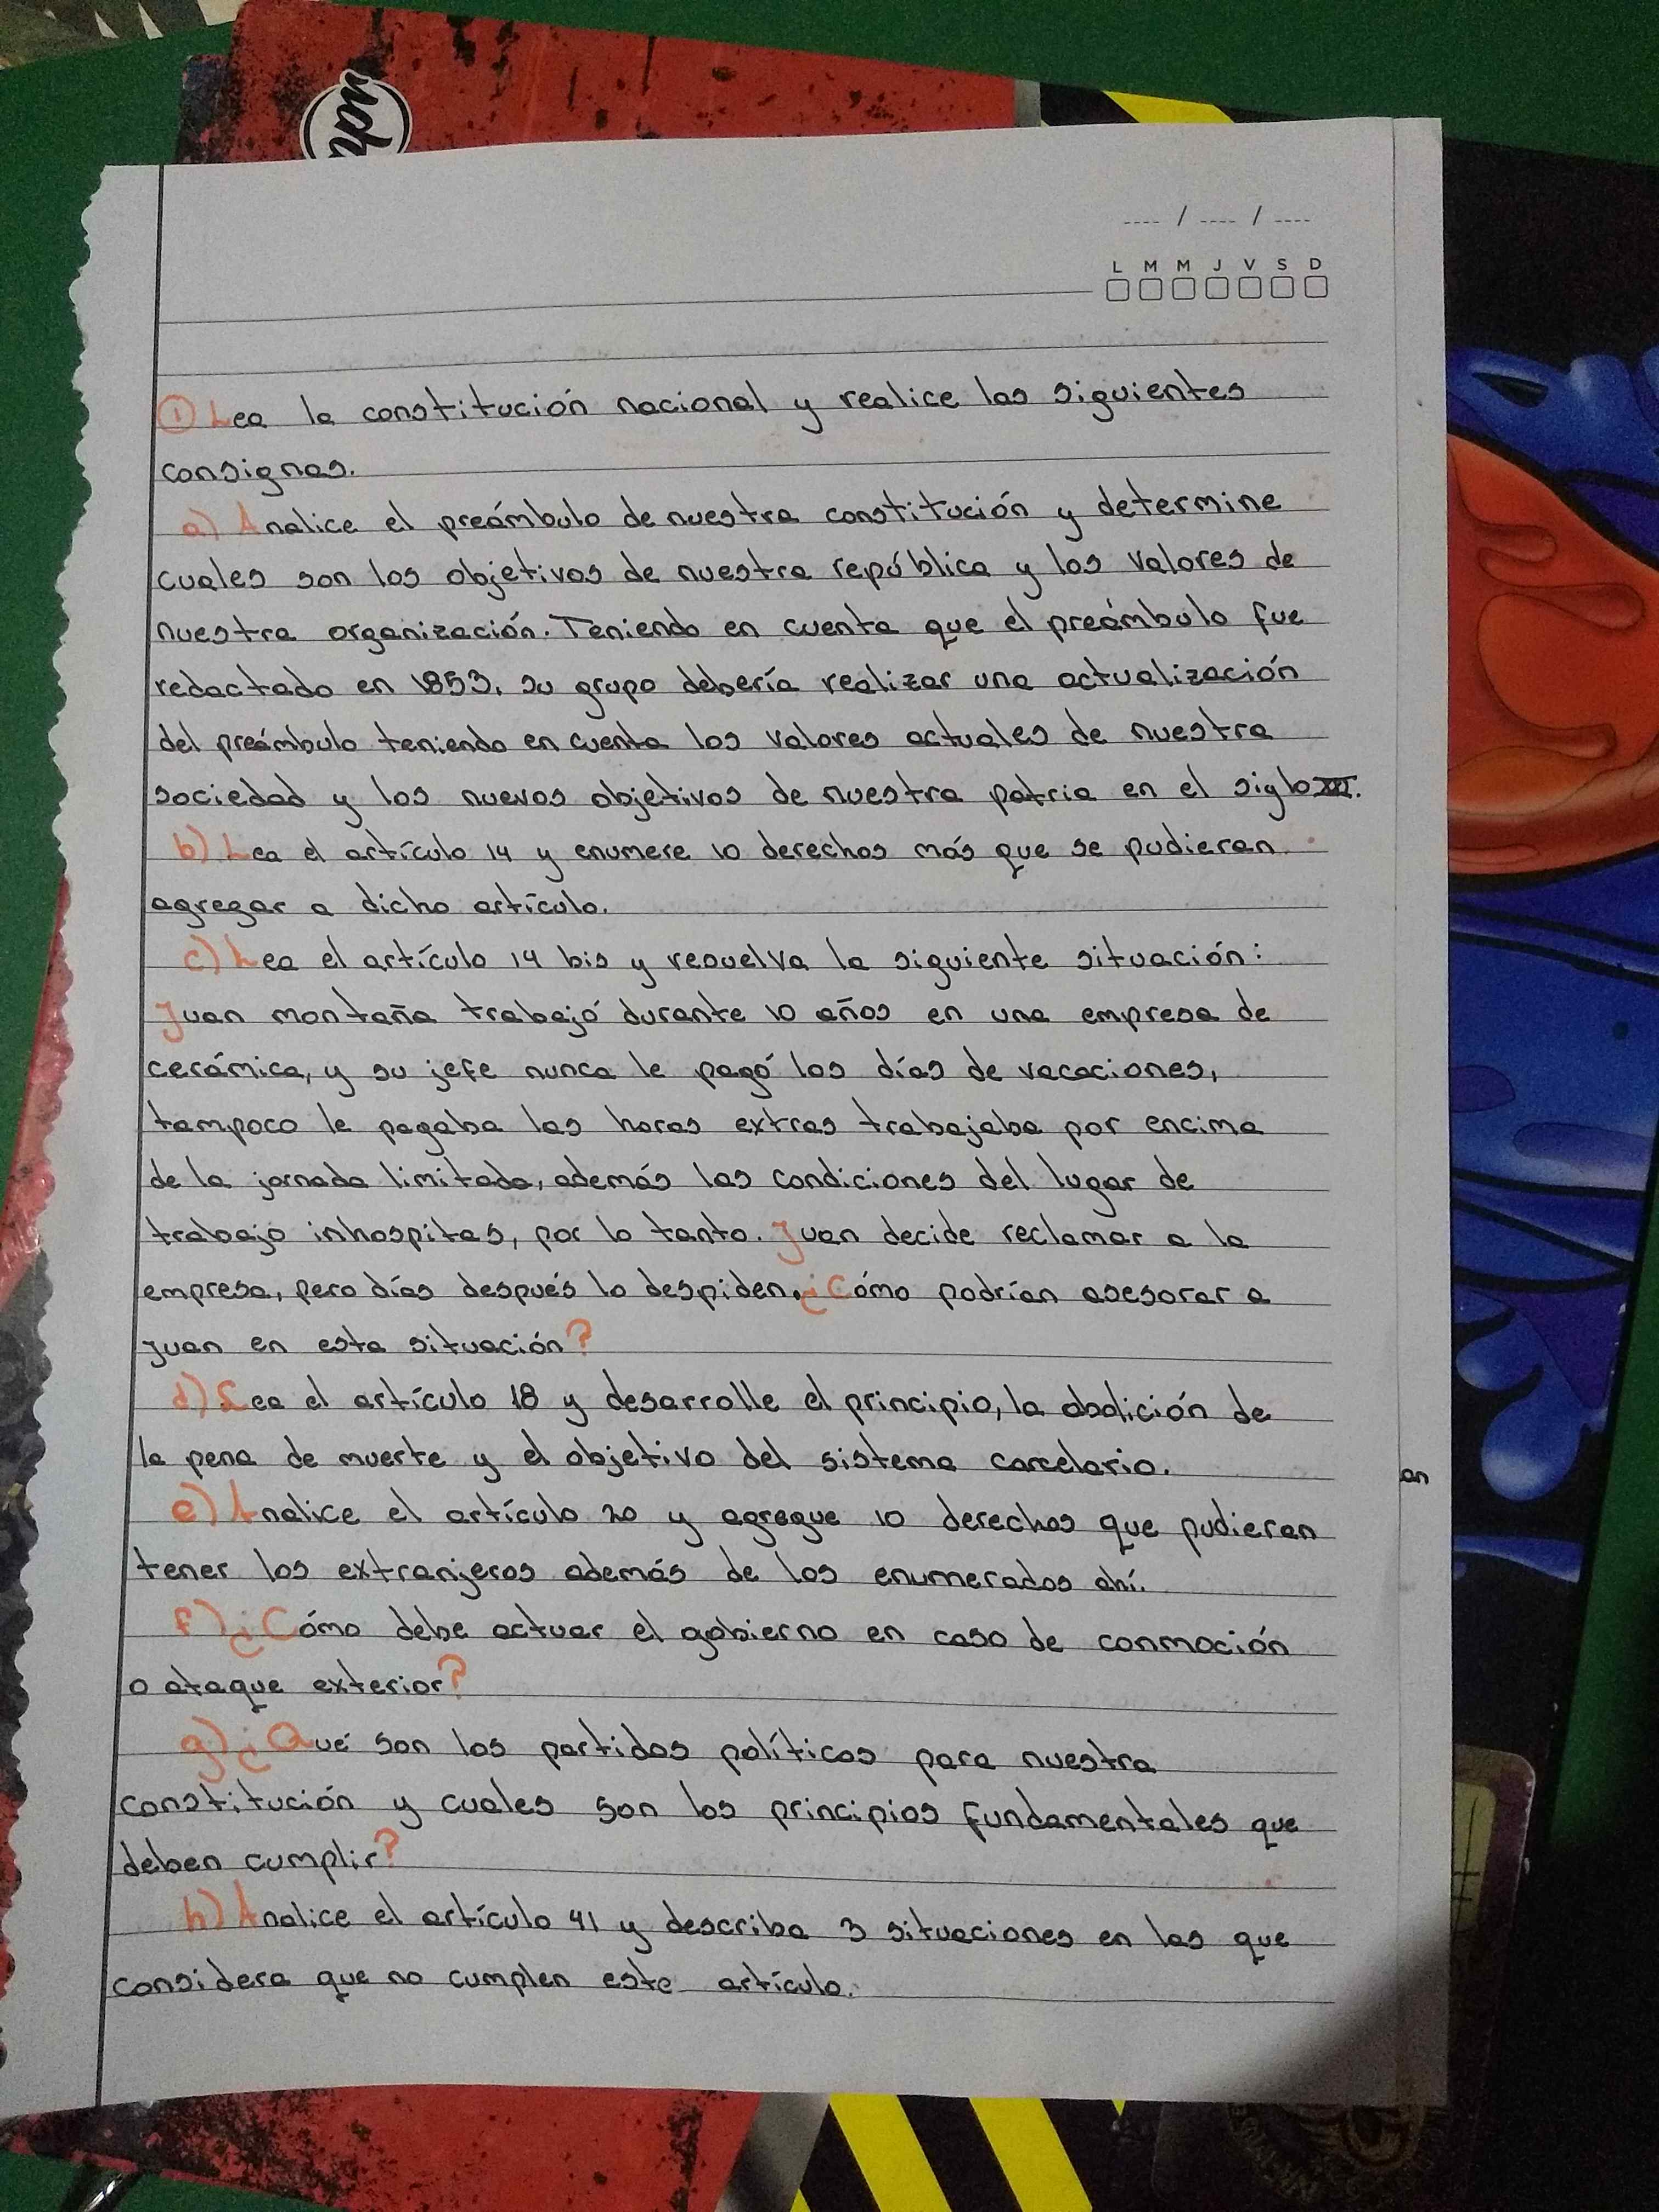 ---- / ---- / ----
L M M J V S D
① Lea la constitución nacional y realice las siguientes
consignas.
a) Analice el preámbulo de nuestra constitución y determine
cuales son los objetivos de nuestra república y los valores de
nuestra organización. Teniendo en cuenta que el preámbulo fue
redactado en 1853, su grupo debería realizar una actualización
del preámbulo teniendo en cuenta los valores actuales de nuestra
sociedad y los nuevos objetivos de nuestra patria en el siglo XXI.
b) Lea el artículo 14 y enumere 10 derechos más que se pudieran
agregar a dicho artículo.
c) Lea el artículo 14 bis y resuelva la siguiente situación:
Juan montaña trabajó durante 10 años en una empresa de
cerámica, y su jefe nunca le pagó los días de vacaciones,
tampoco le pagaba las horas extras trabajaba por encima
de la jornada limitada, además las condiciones del lugar de
trabajo inhospitas, por lo tanto. Juan decide reclamar a la
empresa, pero días después lo despiden. ¿Cómo podrían asesorar a
juan en esta situación?
d) Lea el artículo 18 y desarrolle el principio, la abolición de
la pena de muerte y el objetivo del sistema carcelario.
e) Analice el artículo 20 y agregue 10 derechos que pudieran
tener los extranjeros además de los enumerados ahí.
f) ¿Cómo debe actuar el gobierno en caso de conmoción
o ataque exterior?
g) ¿Qué son los partidos políticos para nuestra
constitución y cuales son los principios fundamentales que
deben cumplir?
h) Analice el artículo 41 y describa 3 situaciones en las que
considera que no cumplen este artículo.
an